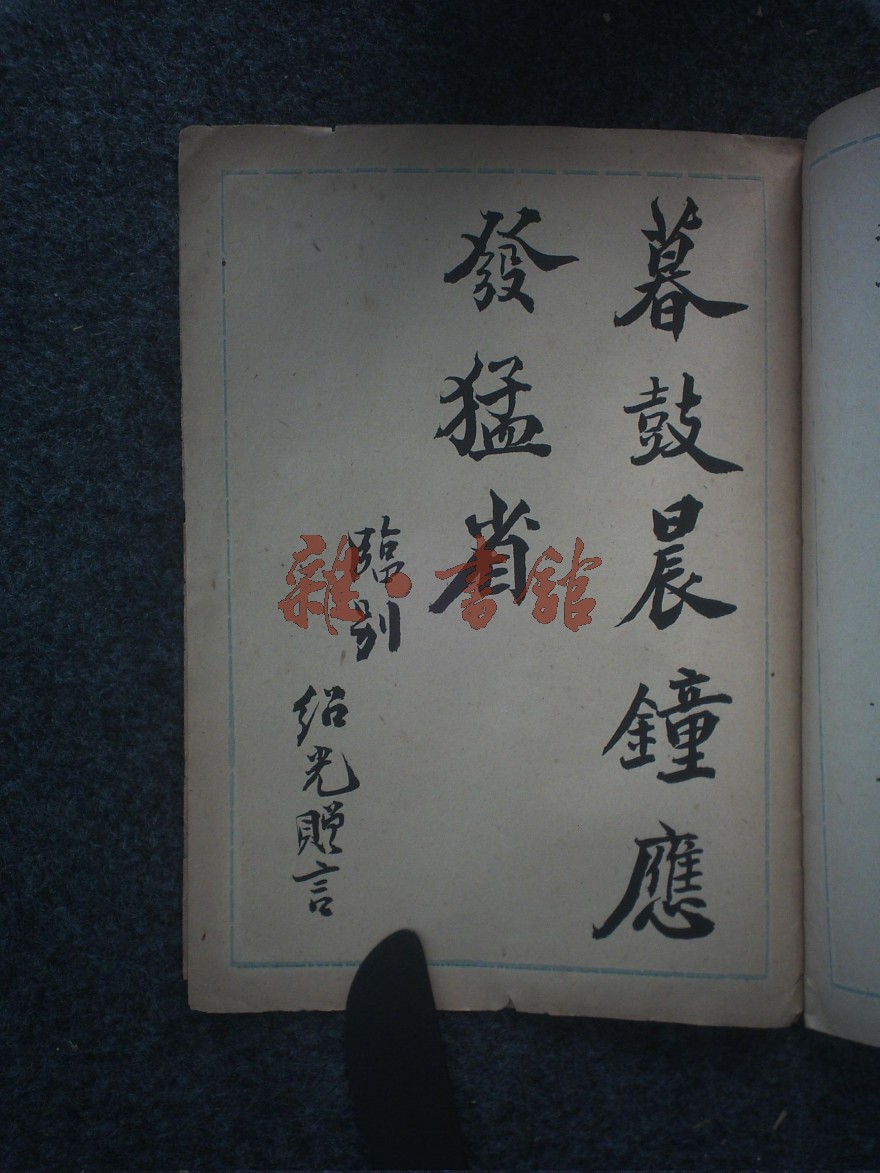 暮鼓晨鐘應
發猛省
臨别
绍光贈言
雜·書館